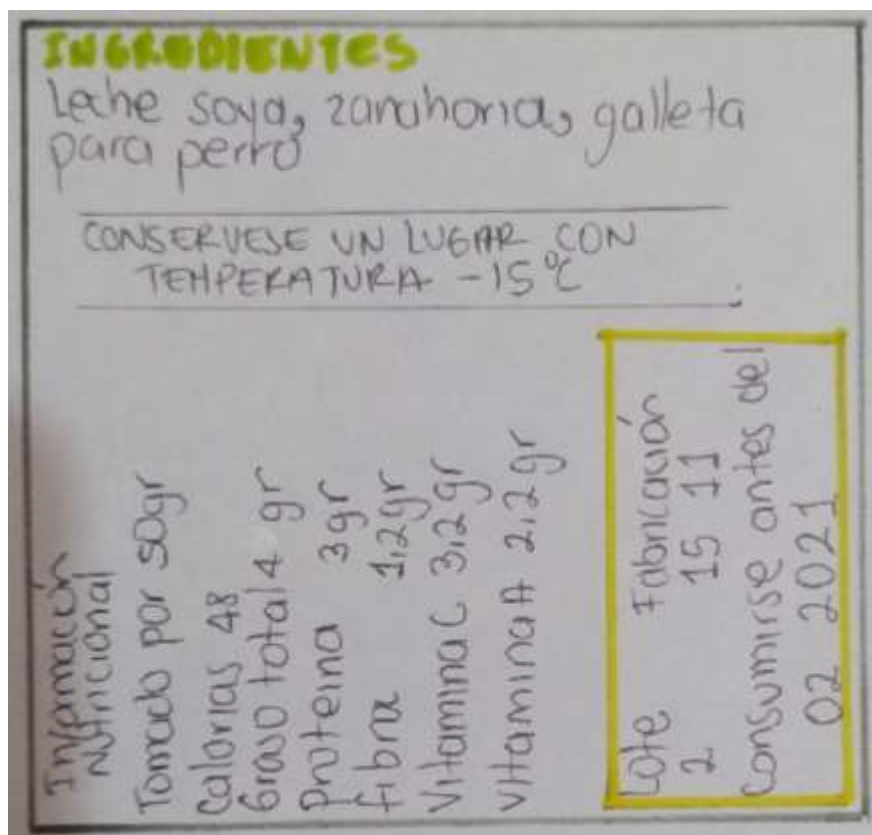 INGREDIENTES
Leche soya, zanahoria, galleta
para perro
CONSERVESE UN LUGAR CON
TEMPERATURA -15°C
Información
Nutricional
Tomado por 50gr
Calorias 48
Graso total 4 gr
Proteina 3gr
fibra 1,2gr
Vitamina C 3,2gr
Vitamina A 2,2gr
Lote Fabricación
2 15 11
Consumirse antes del
02 2021